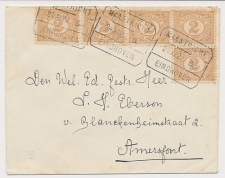 MAASTRICHT
EINDHOVEN
MAASTRICHT
EINDHOVEN
Den Wel. Ed. Zestr. Heer
L. H. Eberson
v. Blanckenheimstraat 2
Amersfoort